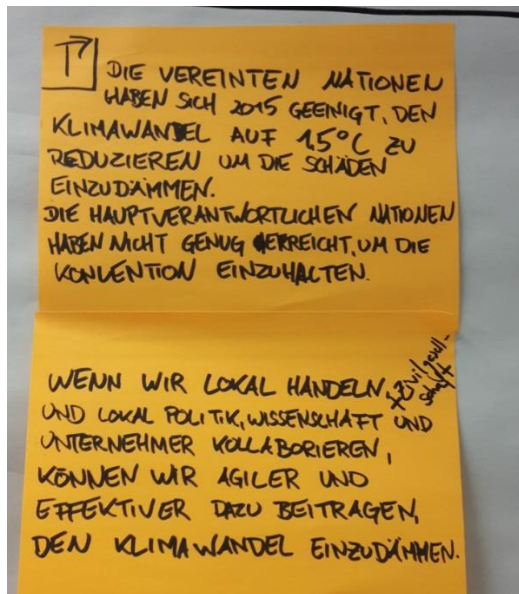 DIE VEREINTEN NATIONEN
HABEN SICH 2015 GEEINIGT, DEN
KLIMAWANDEL AUF 1,5°C ZU
REDUZIEREN UM DIE SCHÄDEN
EINZUDÄMMEN.
DIE HAUPTVERANTWORTLICHEN NATIONEN
HABEN NICHT GENUG ERREICHT, UM DIE
KONVENTION EINZUHALTEN.
WENN WIR LOKAL HANDELN
UND LOKAL POLITIK, WISSENSCHAFT UND
+ Zivilgesell-
schaft
UNTERNEHMER KOLLABORIEREN,
KÖNNEN WIR AGILER UND
EFFEKTIVER DAZU BEITRAGEN,
DEN KLIMAWANDEL EINZUDÄMMEN.